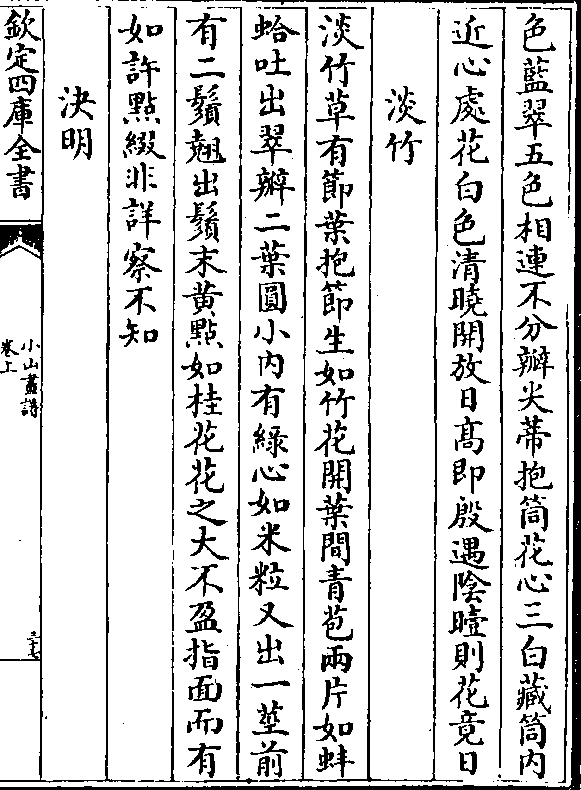 色藍翠五色相連不分瓣尖蒂抱筒花心三白藏筒内
近心處花白色清曉開放日髙即殷遇陰曀則花竟日
淡竹
淡竹草有節葉抱節生如竹花開葉間青苞兩片如蚌
蛤吐出翠瓣二葉圓小内有緑心如米粒又出一莖前
有二鬚翹出鬚末黄點如桂花花之大不盈指面而有
如許點綴非詳察不知
決明
欽定四庫全書
小山畫譜
卷上